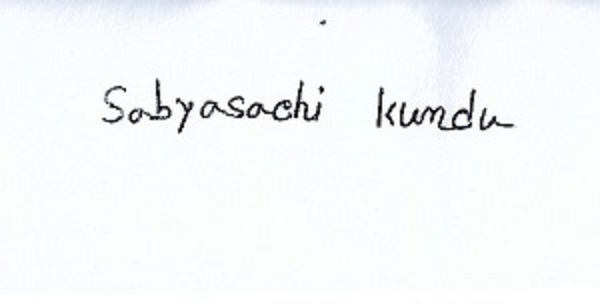 Sabyasachi kundu